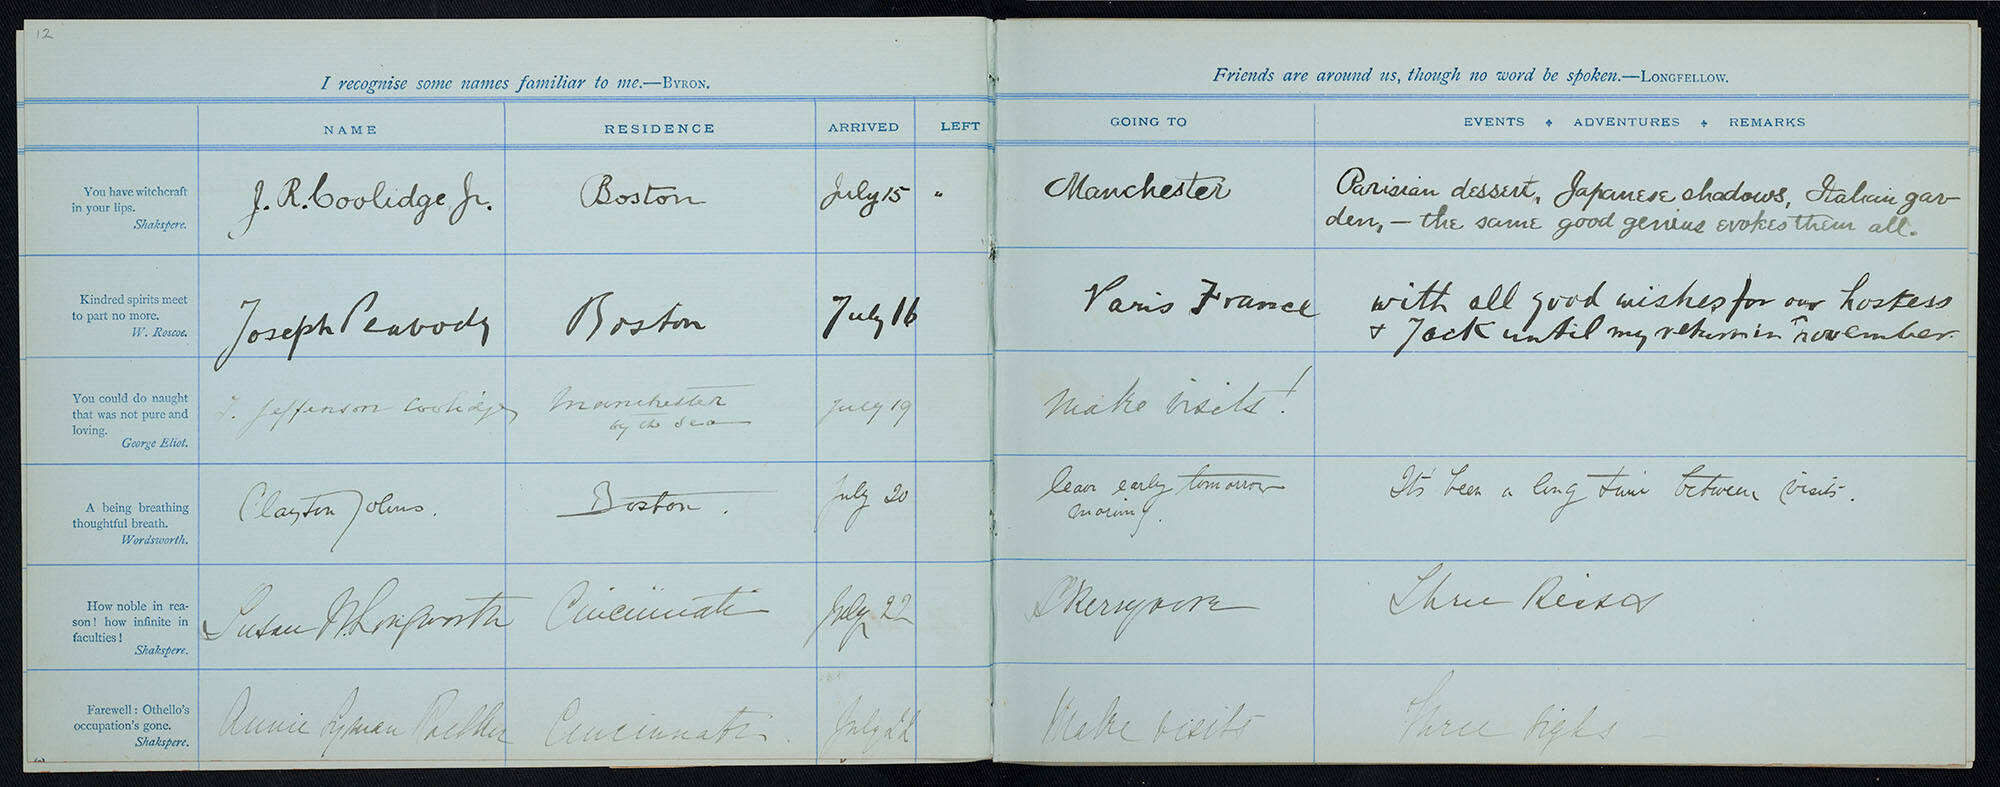 12
I recognise some names familiar to me.—BYRON.
Friends are around us, though no word be spoken.—LONGFELLOW.
NAME RESIDENCE ARRIVED LEFT GOING TO EVENTS ✦ ADVENTURES ✦ REMARKS
You have witchcraft
in your lips.
Shakspere.
J. R. Coolidge Jr. Boston July 15 " Manchester
Parisian dessert, Japanese shadows, Italian gar-
den, — the same good genius evokes them all.
Kindred spirits meet
to part no more.
W. Roscoe.
Joseph Peabody Boston July 16 Paris France
with all good wishes for our hostess
& Jack until my return in november.
You could do naught
that was not pure and
loving.
George Eliot.
T. Jefferson Coolidge Manchester
by the Sea
July 19 Make visits!
A being breathing
thoughtful breath.
Wordsworth.
Clayton Johns. Boston. July 20
leave early tomorrow
morning.
It's been a long time between visits.
How noble in rea-
son! how infinite in
faculties!
Shakspere.
Susan Longworth Cincinnati July 22 Skerryvore Three
Farewell: Othello's
occupation's gone.
Shakspere.
Annie Lyman Cincinnati. July 22 Make visits Three sighs —